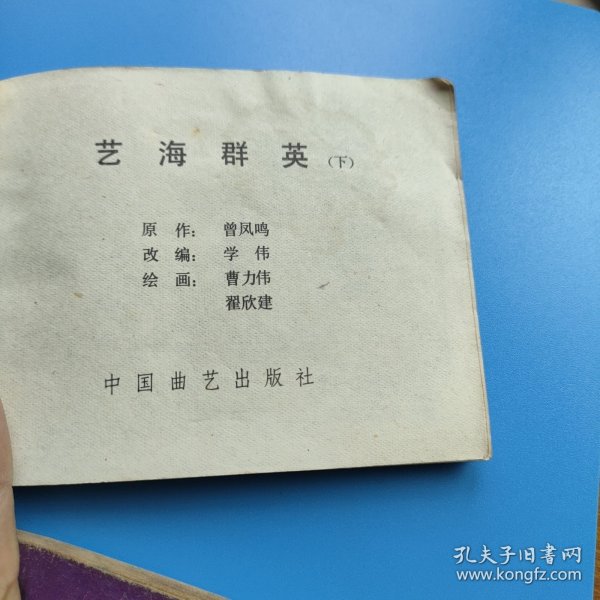 艺海群英(下)
原作:曾凤鸣
改编:学伟
绘画:曹力伟
翟欣建
中国曲艺出版社
孔夫子旧书网
www.kongfz.com